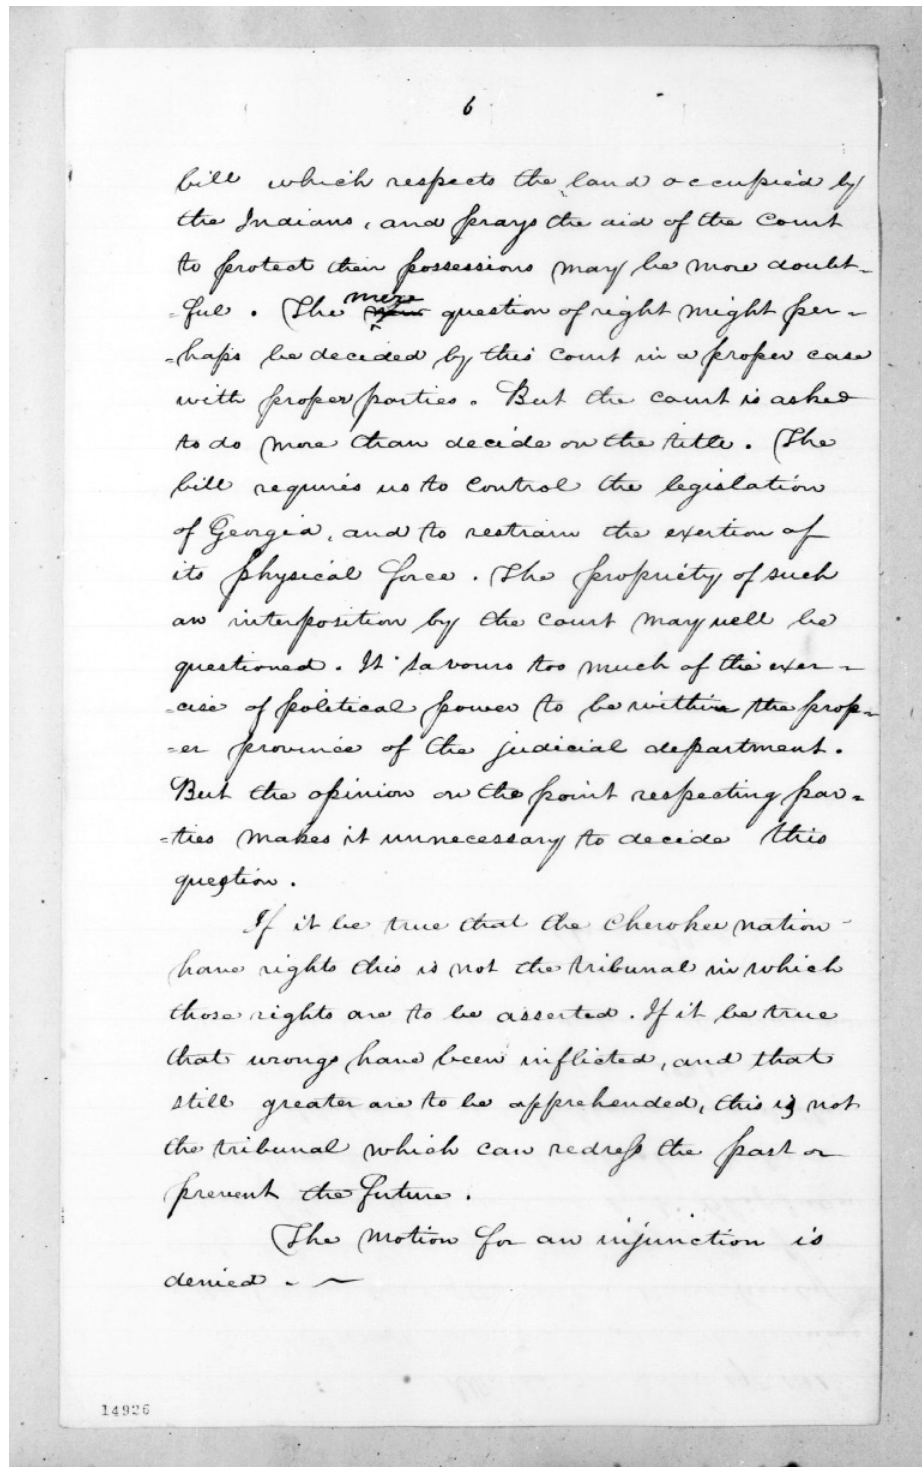 6
bill which respects the land occupied by
the Indians, and prays the aid of the Court
to protect their possessions may be more doubt-
-ful. The mere question of right might per-
-haps be decided by this court in a proper case
with proper parties. But the court is asked
to do more than decide on the title. The
bill requires us to control the legislation
of Georgia, and to restrain the exertion of
its physical force. The propriety of such
an interposition by the court may well be
questioned. It savours too much of the exer-
-cise of political power to be within the prop-
-er province of the judicial department.
But the opinion on the point respecting par-
-ties makes it unnecessary to decide this
question.
If it be true that the Cherokee nation
have rights this is not the tribunal in which
those rights are to be asserted. If it be true
that wrongs have been inflicted, and that
still greater are to be apprehended, this is not
the tribunal which can redress the past or
prevent the future.
The motion for an injunction is
denied.
14926